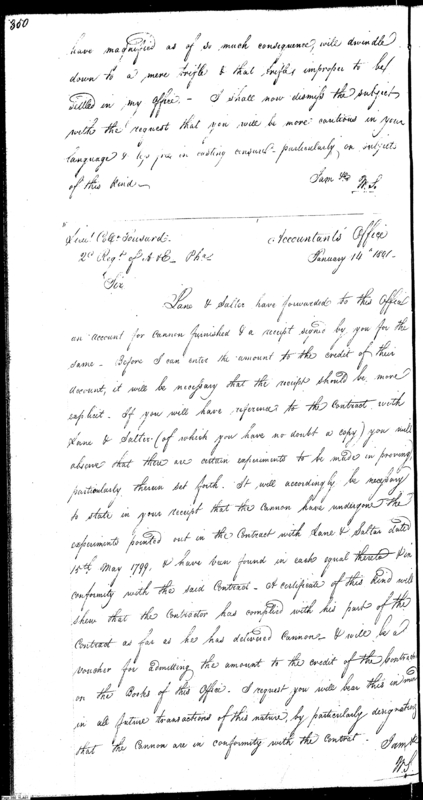 360
have magnified as of so much consequence, will dwindle
down to a mere trifle & that trifle improper to be
settled in my office. - I shall now dismiss the subject
with the request that you will be more cautious in your
language & less free in casting censure - particularly on subjects
of this kind -
I am &c
W. S.
Lieut. Col. Tousard.
Accountants Office
2d Regt. of A & E - Pha.
January 14th 1801 -
Sir
Lane & Salter have forwarded to this Office
an account for Cannon furnished & a receipt signed by you for the
same - Before I can enter the amount to the credit of their
account, it will be necessary that the receipt should be more
explicit - If you will have reference to the Contract with
Lane & Salter (of which you have no doubt a copy) you will
observe that there are certain experiments to be made in proving
particularly therein set forth. It will accordingly be necessary
to state in your receipt that the Cannon have undergone the
experiments pointed out in the Contract with Lane & Salter dated
15th May 1799, & have been found in each equal thereto & in
conformity with the said Contract - A certificate of this kind will
shew that the Contractor has complied with his part of the
Contract as far as he has delivered Cannon - & will be a
voucher for admitting the amount to the credit of the Contractor
on the Books of this Office. I request you will bear this in mind
in all future transactions of this nature, by particularly designating
that the Cannon are in conformity with the Contract - I am &c
W. S.